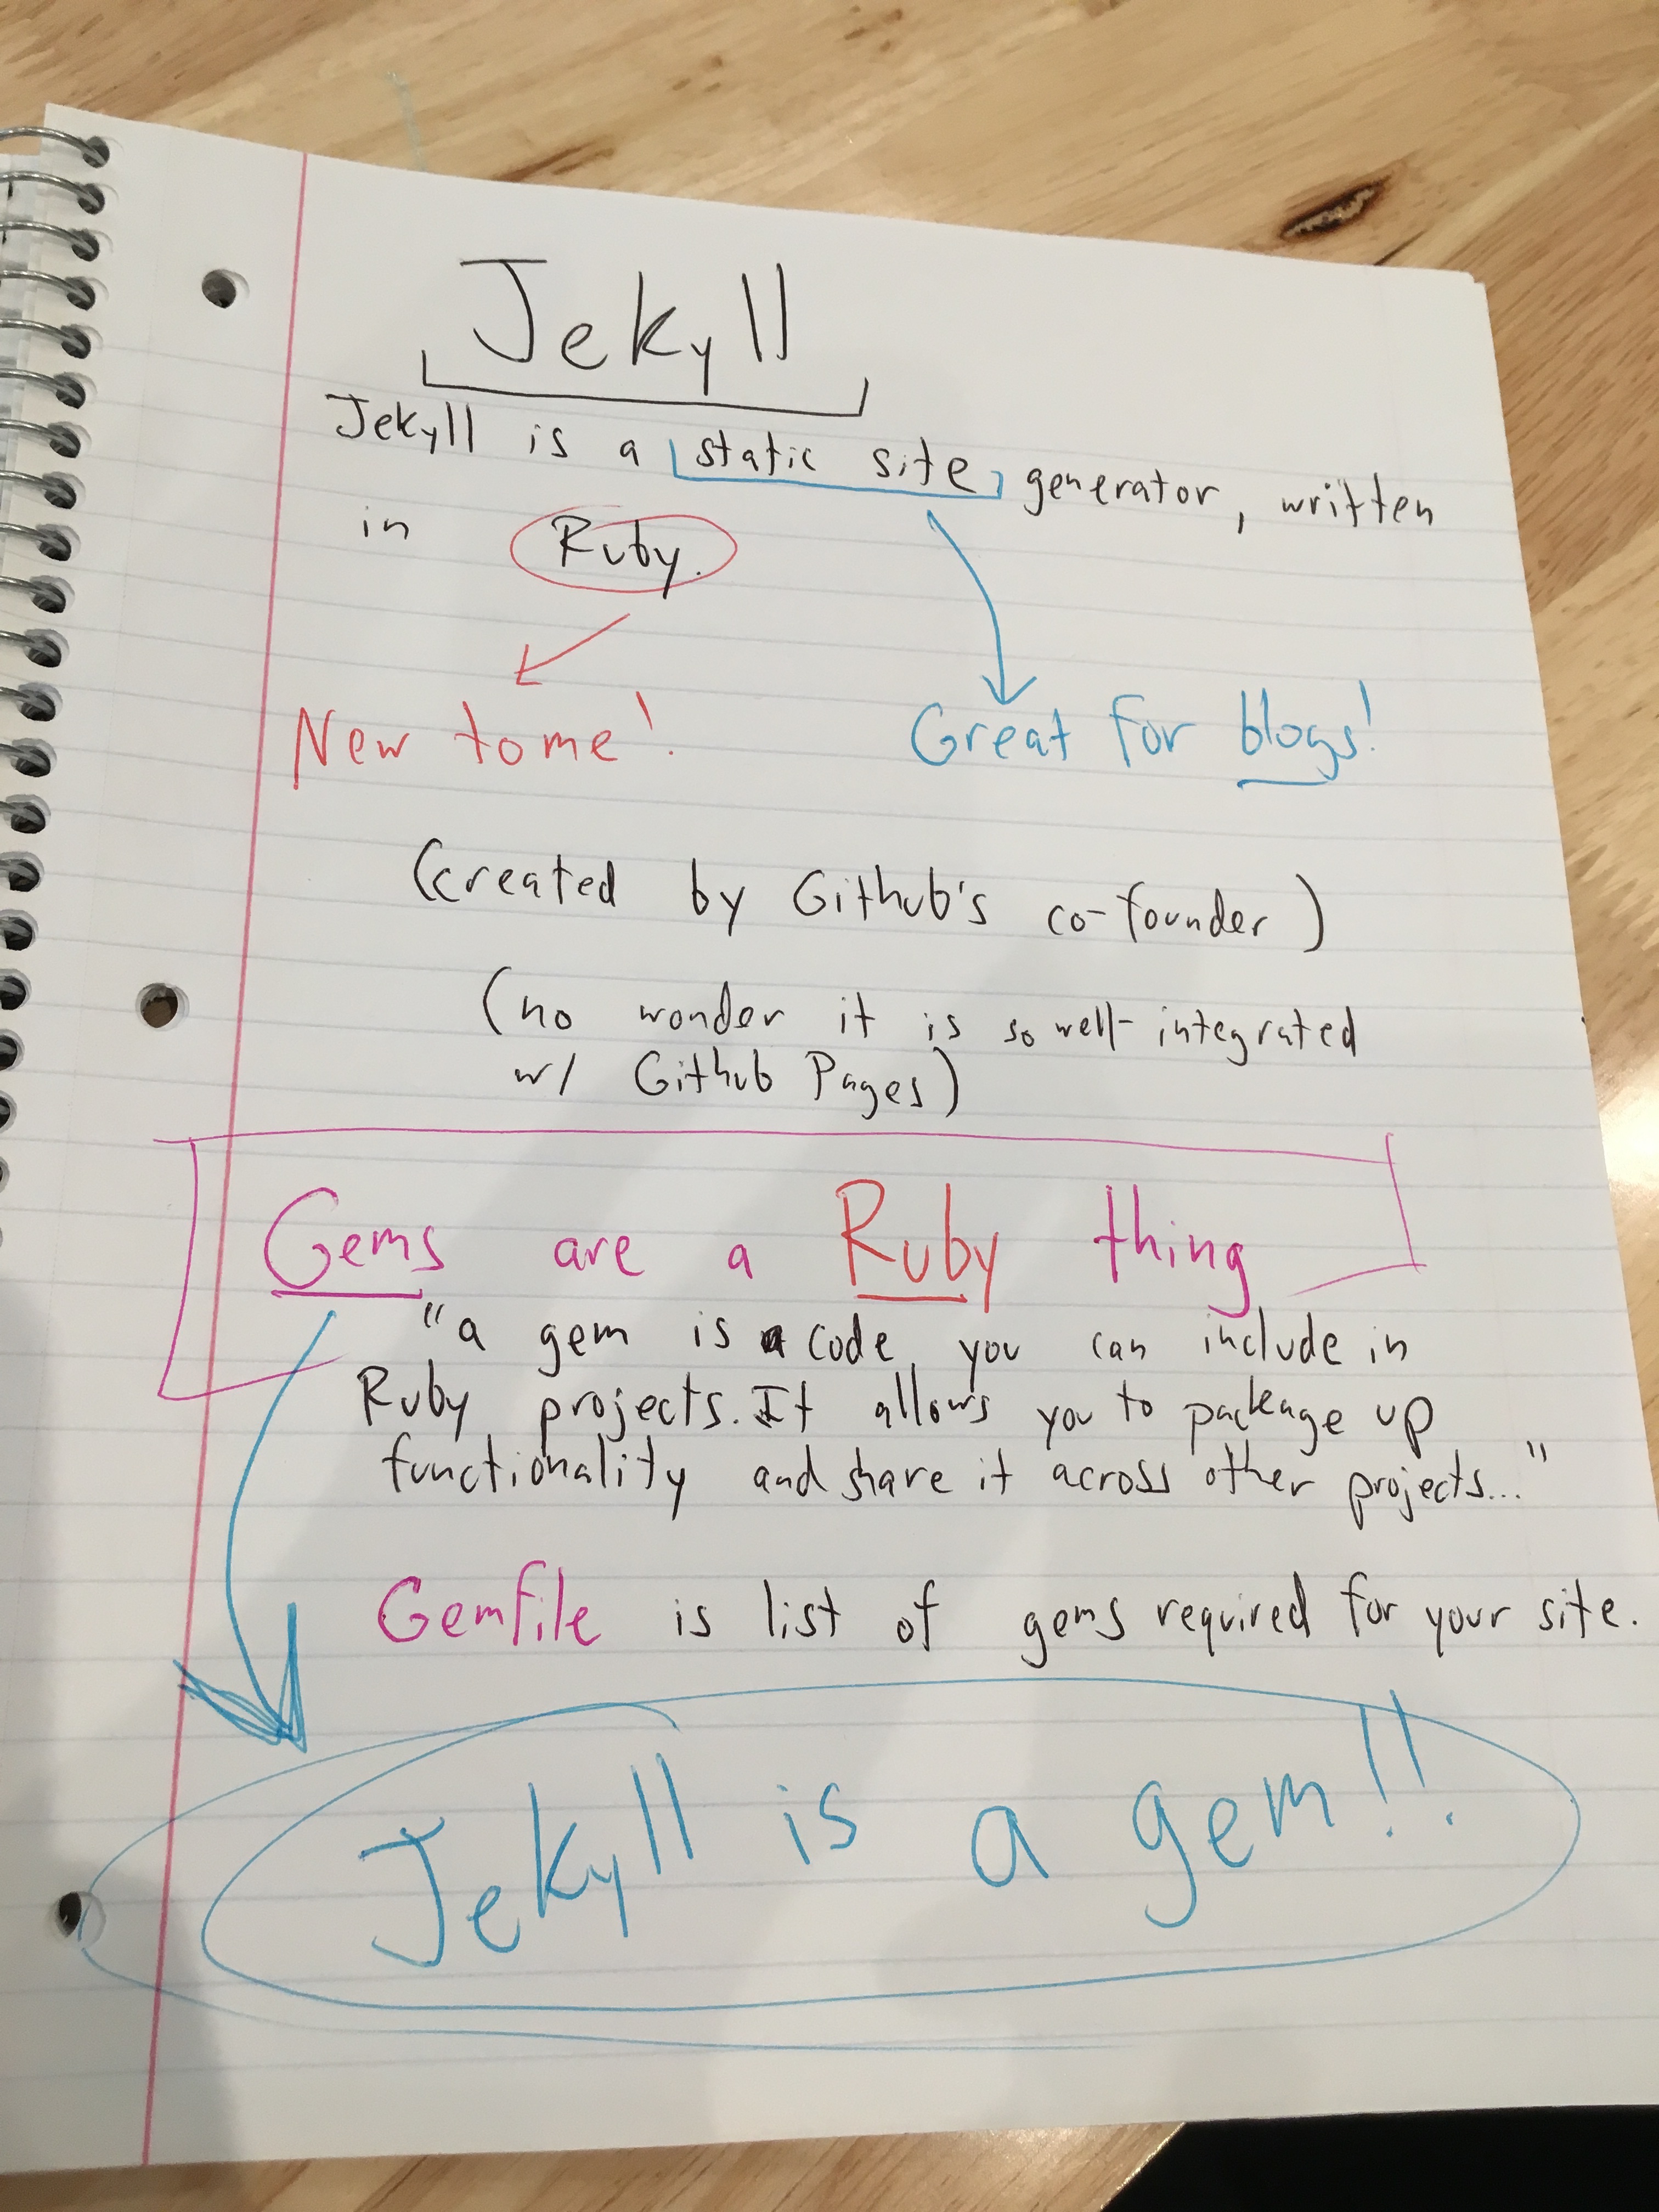 Jekyll
Jekyll is a static site generator, written
in Ruby.
New to me!
Great for blogs!
(created by Github's co-founder)
(no wonder it is so well-integrated
w/ Github Pages)
Gems are a Ruby thing
"a gem is code you can include in
Ruby projects. It allows you to package up
functionality and share it across other projects..."
Gemfile is list of gems required for your site.
Jekyll is a gem!!